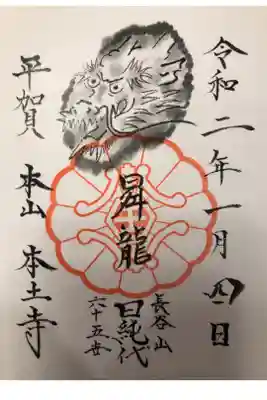 令和二年一月四日
昇龍
長谷山
日純代
六十五世
平賀
本山 本土寺